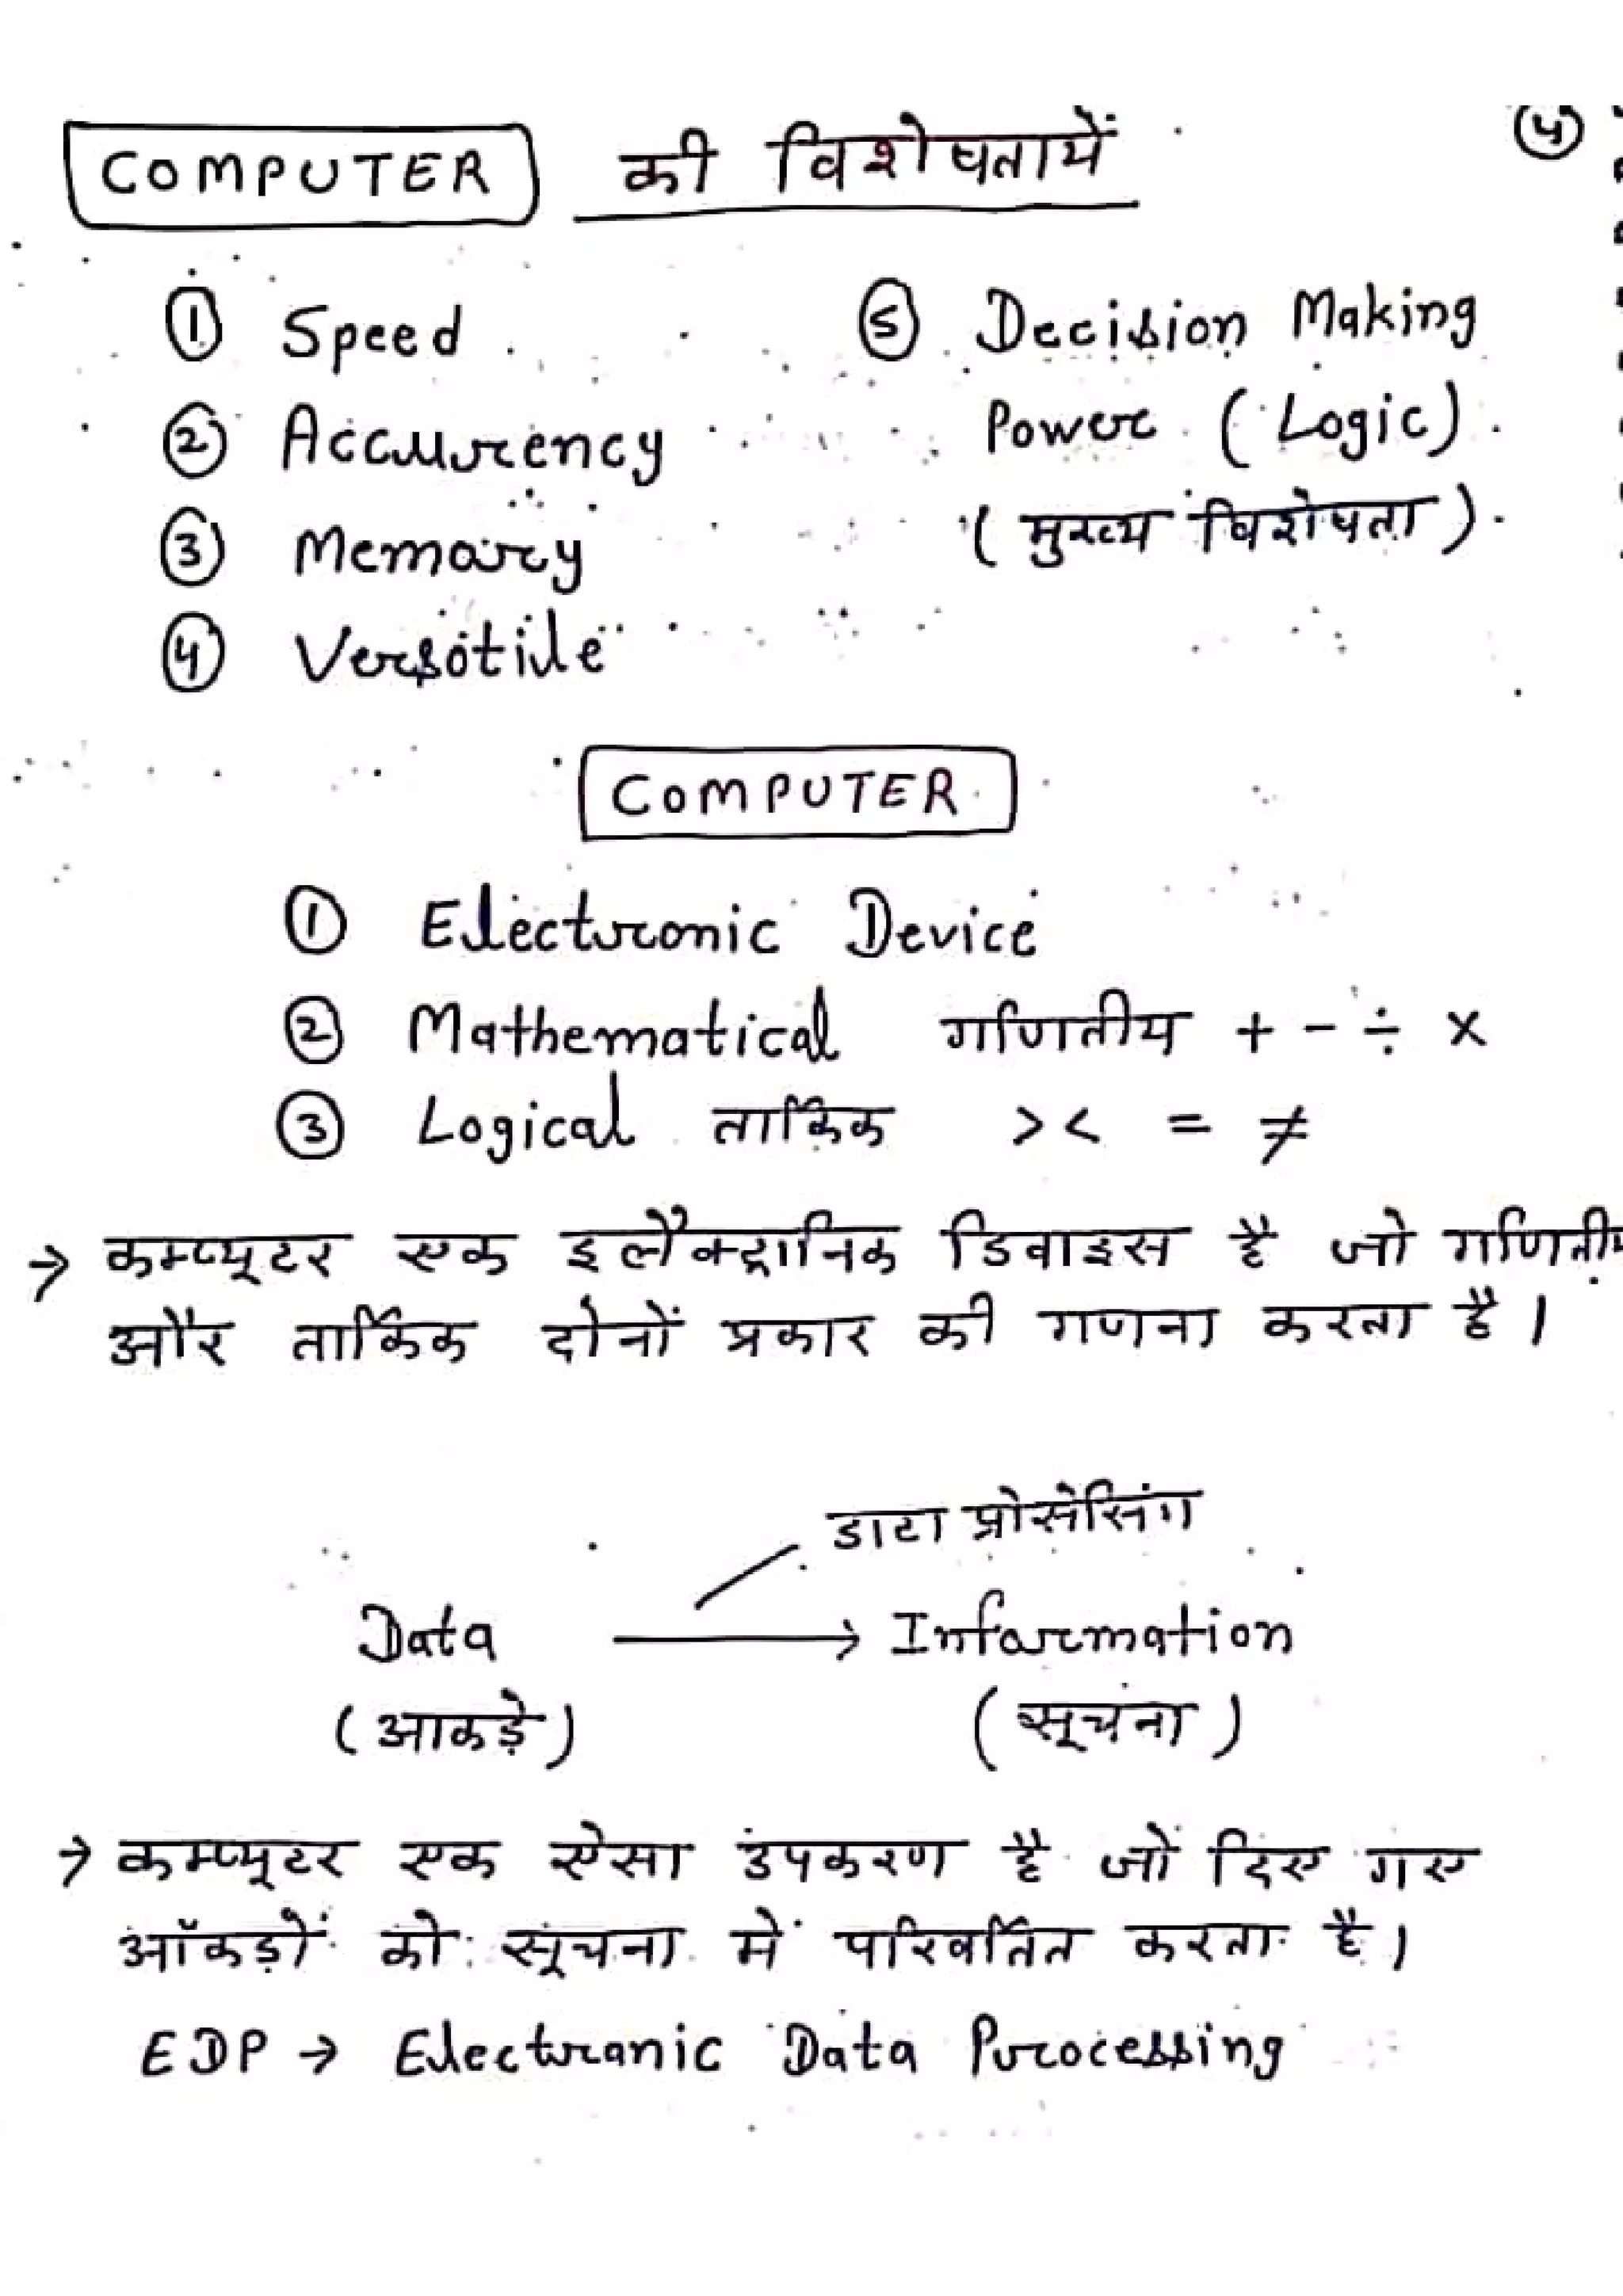 COMPUTER की विशेषतायें
① Speed
② Accurency
③ Memory
④ Versotile
⑤ Decision Making
Power (Logic)
(मुख्य विशेषता)
COMPUTER
① Electronic Device
② Mathematical गणितीय + - ÷ ×
③ Logical तार्किक > < = ≠
→ कम्प्यूटर एक इलैक्ट्रानिक डिवाइस है जो गणितीय
और तार्किक दोनों प्रकार की गणना करता है।
डाटा प्रोसेसिंग
Data → Information
(आकड़े) (सूचना)
→ कम्प्यूटर एक ऐसा उपकरण है जो दिए गए
आँकड़ों को सूचना में परिवर्तित करता है।
EDP → Electronic Data Processing